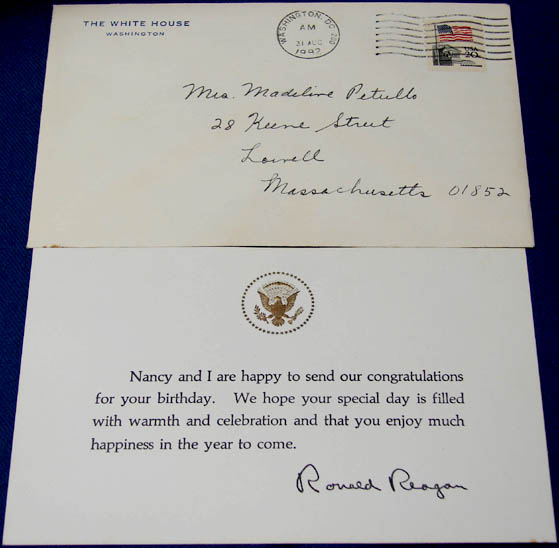 THE WHITE HOUSE
WASHINGTON
WASHINGTON, DC 200
AM
31 AUG
1982
USA
20c
Mrs. Madeline Petullo
28 Keene Street
Lowell
Massachusetts 01852
Nancy and I are happy to send our congratulations
for your birthday. We hope your special day is filled
with warmth and celebration and that you enjoy much
happiness in the year to come.
Ronald Reagan